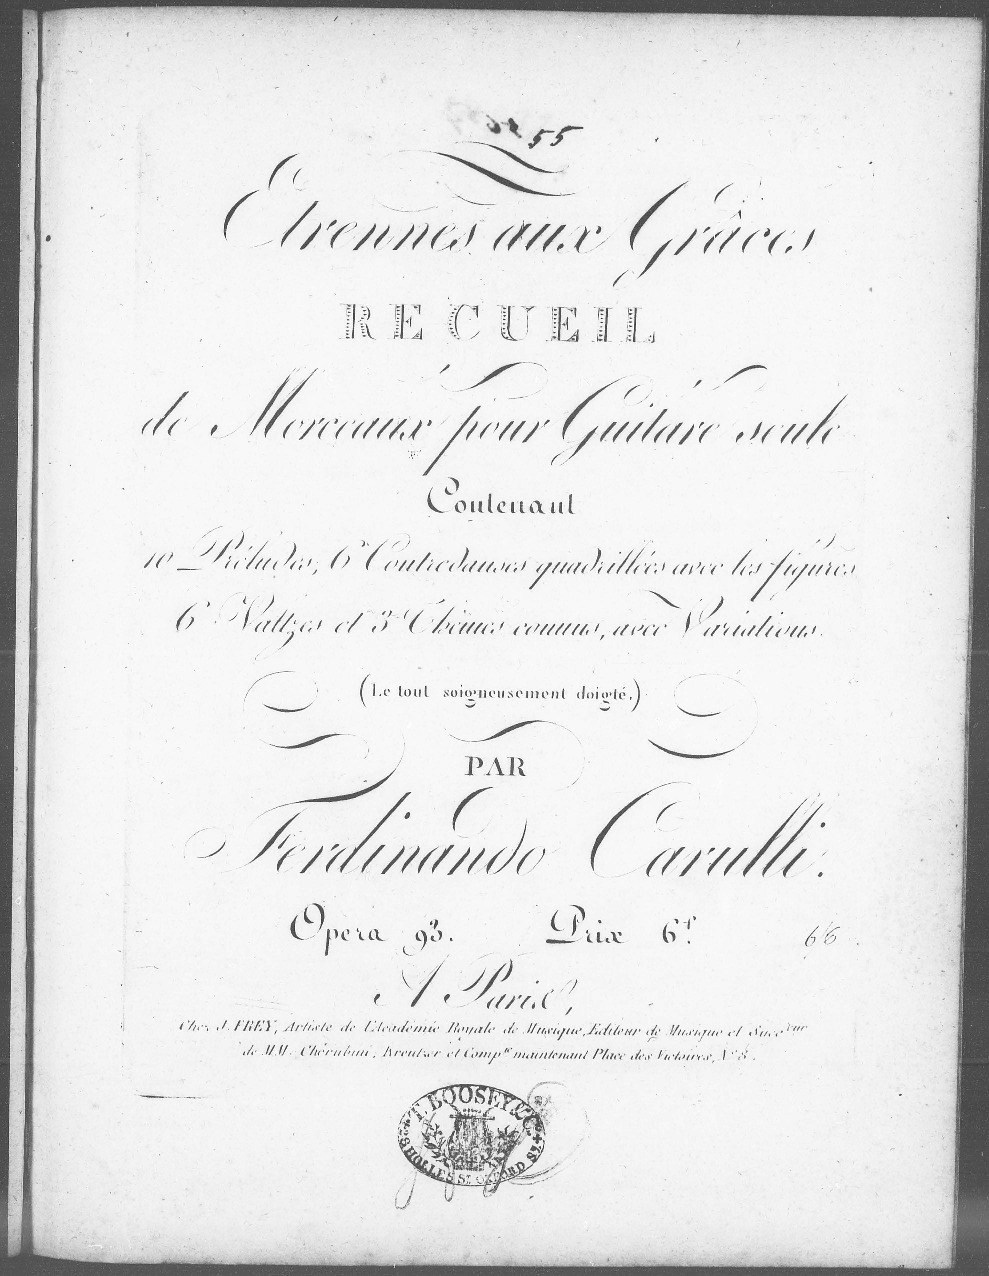 55
Etrennes aux Grâces
RECUEIL
de Morceaux pour Guitare seule
Contenant
10 Préludes, 6 Contredanses quadrillées avec les figures
6 Valtzes et 3 Thêmes connus, avec Variations.
(Le tout soigneusement doigté.)
PAR
Ferdinando Carulli.
Opera 93. Prix 6f.
6/6
A Paris,
Chez J. FREY, Artiste de l'Académie Royale de Musique, Editeur de Musique et Succeur
de MM. Chérubini, Kreutzer et Compie maintenant Place des Victoires, No 8.
T. BOOSEY & Co
28 HOLLES St. OXFORD St.